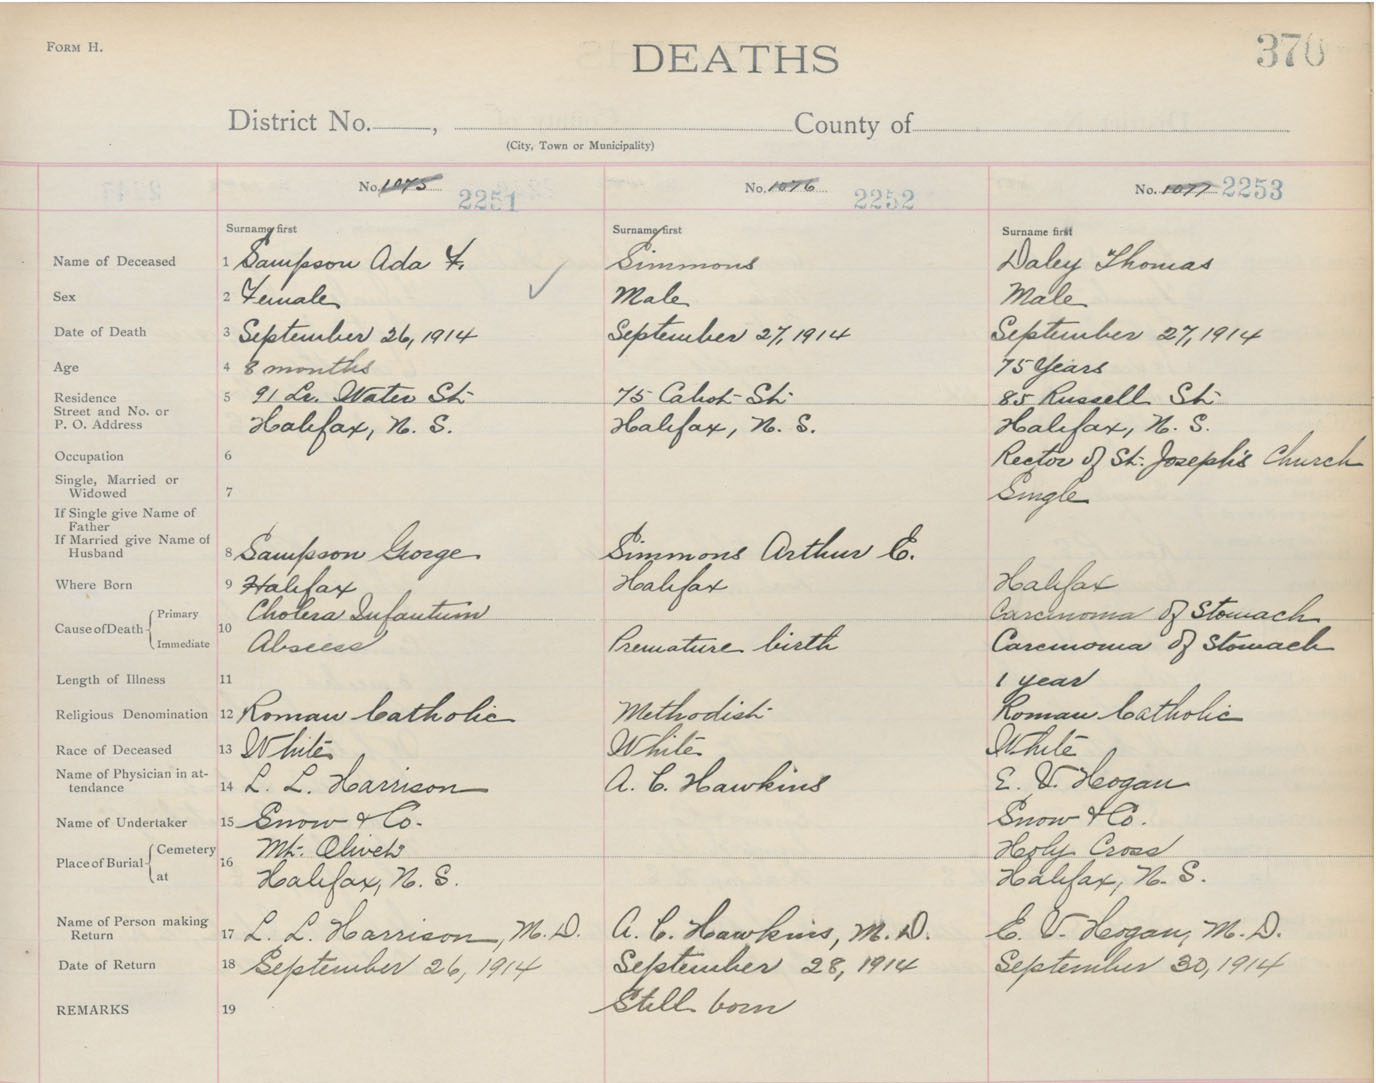 FORM H.
DEATHS
370
District No. , County of
(City, Town or Municipality)
No. 1075 2251 No. 1076 2252 No. 1077 2253
Surname first Surname first Surname first
Name of Deceased 1 Sampson Ada F. Simmons Daley Thomas
Sex 2 Female Male Male
Date of Death 3 September 26, 1914 September 27, 1914 September 27, 1914
Age 4 8 months 75 Years
Residence 5 91 Lr. Water St. 75 Cabot St. 85 Russell St.
Street and No. or
P. O. Address Halifax, N. S. Halifax, N. S. Halifax, N. S.
Occupation 6 Rector of St. Joseph's Church
Single, Married or
Widowed 7 Single
If Single give Name of
Father
If Married give Name of
Husband 8 Sampson George Simmons Arthur E.
Where Born 9 Halifax Halifax Halifax
Cause of Death Primary 10 Cholera Infantum Carcinoma of Stomach
Immediate Abscess Premature birth Carcinoma of Stomach
Length of Illness 11 1 year
Religious Denomination 12 Roman Catholic Methodist Roman Catholic
Race of Deceased 13 White White White
Name of Physician in at-
tendance 14 L. L. Harrison A. C. Hawkins E. V. Hogan
Name of Undertaker 15 Snow & Co. Snow & Co.
Place of Burial Cemetery 16 Mt. Olivet Holy Cross
at Halifax, N. S. Halifax, N. S.
Name of Person making
Return 17 L. L. Harrison, M. D. A. C. Hawkins, M. D. E. V. Hogan, M. D.
Date of Return 18 September 26, 1914 September 28, 1914 September 30, 1914
REMARKS 19 Still born